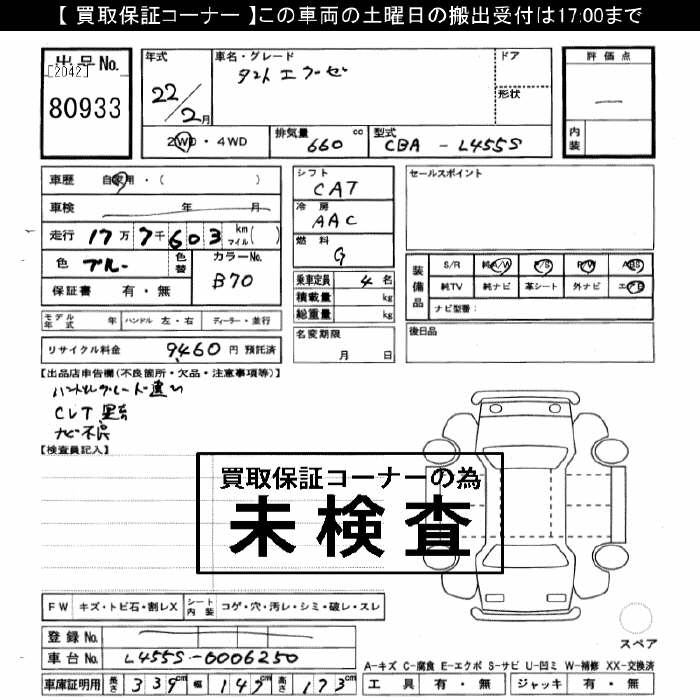 【 買取保証コーナー 】この車両の土曜日の搬出受付は17:00まで
出品No.
[2042]
80933
年式
22/2月
車名・グレード
タント エグゼ
ドア
形状
評価点
内装
2WD・4WD
排気量 660 cc
型式 CBA - L455S
車歴 自家用・( )
車検 年 月
走行 17万7千603 km マイル( )
色 ブルー 色替
カラーNo. B70
保証書 有・無
シフト CAT
冷房 AAC
燃料 G
乗車定員 4名
積載量 kg
総重量 kg
名変期限 月 日
セールスポイント
装備品
S/R 純A/W P/S P/W ABS
純TV 純ナビ 革シート 外ナビ エアB
ナビ型番:
後日品
モデル年式 年 ハンドル 左・右 ディーラー・並行
リサイクル料金 9,460 円 預託済
【出品店申告欄(不良箇所・欠品・注意事項等)】
ナビ不良
【検査員記入】
買取保証コーナーの為
未検査
FW キズ・トビ石・割レX シート内装 コゲ・穴・汚レ・シミ・破レ・スレ
登録No.
車台No. L455S-0006250
スペア
A-キズ C-腐食 E-エクボ S-サビ U-凹ミ W-補修 XX-交換済
車庫証明用 長さ 339cm 幅 147cm 高さ 173cm
工具 有・無 ジャッキ 有・無